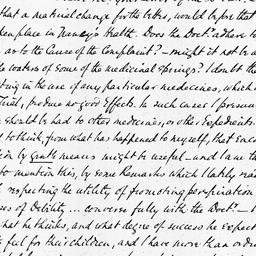 that a material change for the better, would before that
place in Fanny's Health. Does the Doct. adhere to
as to the Cause of the Complaint? – might it not be a
waters of some of the medicinal springs? I doubt the
in the use of any particular medecines, which
Trial, produce no good Effects. In such cases I presume
should be had to other medecines, or other Expedients.
to think, from what has happened to myself, that
in by gentle means might be useful – and I am
to mention this, by some Remarks which I lately
respecting the utility of promoting perspiration
of Debility ... converse fully with the Doct. –
what he thinks, and what degree of success he expects
ful for their children, and I have more than